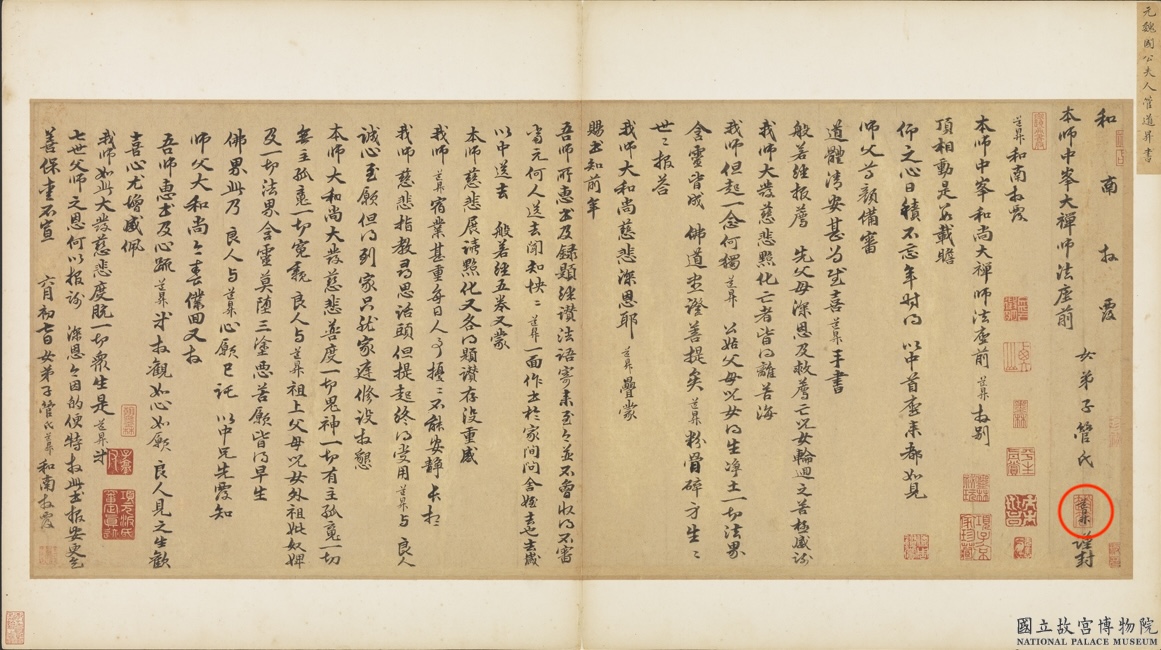 元魏國公夫人管道昇書
和南拜覆
本師中峯大禪師法座前
女弟子管氏道昇謹封
道昇和南拜覆
本師中峯和尚大禪師法座前道昇拜別
頂相動是若載瞻
仰之心日積不忘年時得以中首座來都如見
師父尊顏備審
道體清安甚為忻喜道昇手書
般若經報薦先父母深恩及救薦亡兒女輪迴之苦極感謝
我師大發慈悲點化亡者皆得離苦海
我師但起一念何獨道昇公姑父母兒女得生淨土一切法界
含靈皆成佛道並證菩提矣道昇粉骨碎身生生
世世報答
我師大和尚慈悲深恩耶道昇疊蒙
賜書知前年
吾師所惠書及錄顯經讚法語寄來至今並不曾收得不審
當元何人送去聞知怏怏道昇一面作書於家間問舍姪去也去歲
以中送去般若經五卷又蒙
本師慈悲展讀點化又各得題讚存沒重感
我師道昇宿業甚重每日人事擾擾不能安靜長想
我師慈悲指教尋思話頭但提起終得受用道昇與良人
誠心至願但得到家只就家庭修設拜懇
本師大和尚大發慈悲普度一切鬼神一切有主孤魂一切
無主孤魂一切冤親良人與道昇祖上父母兒女外祖妣奴婢
及一切法界含靈莫墮三塗惡苦願皆得早生
佛界此乃良人與道昇心願已託以中兄先覆知
師父大和尚今春僕回又拜
吾師惠書及心疏道昇拜觀如心如願良人見之生歡
喜心尤增感佩
我師如此大發慈悲度脫一切眾生是道昇
七世父師之恩何以報謝深恩今因的便特拜此書報安更乞
善保重不宣六月初七日女弟子管氏道昇和南拜覆
國立故宮博物院
NATIONAL PALACE MUSEUM